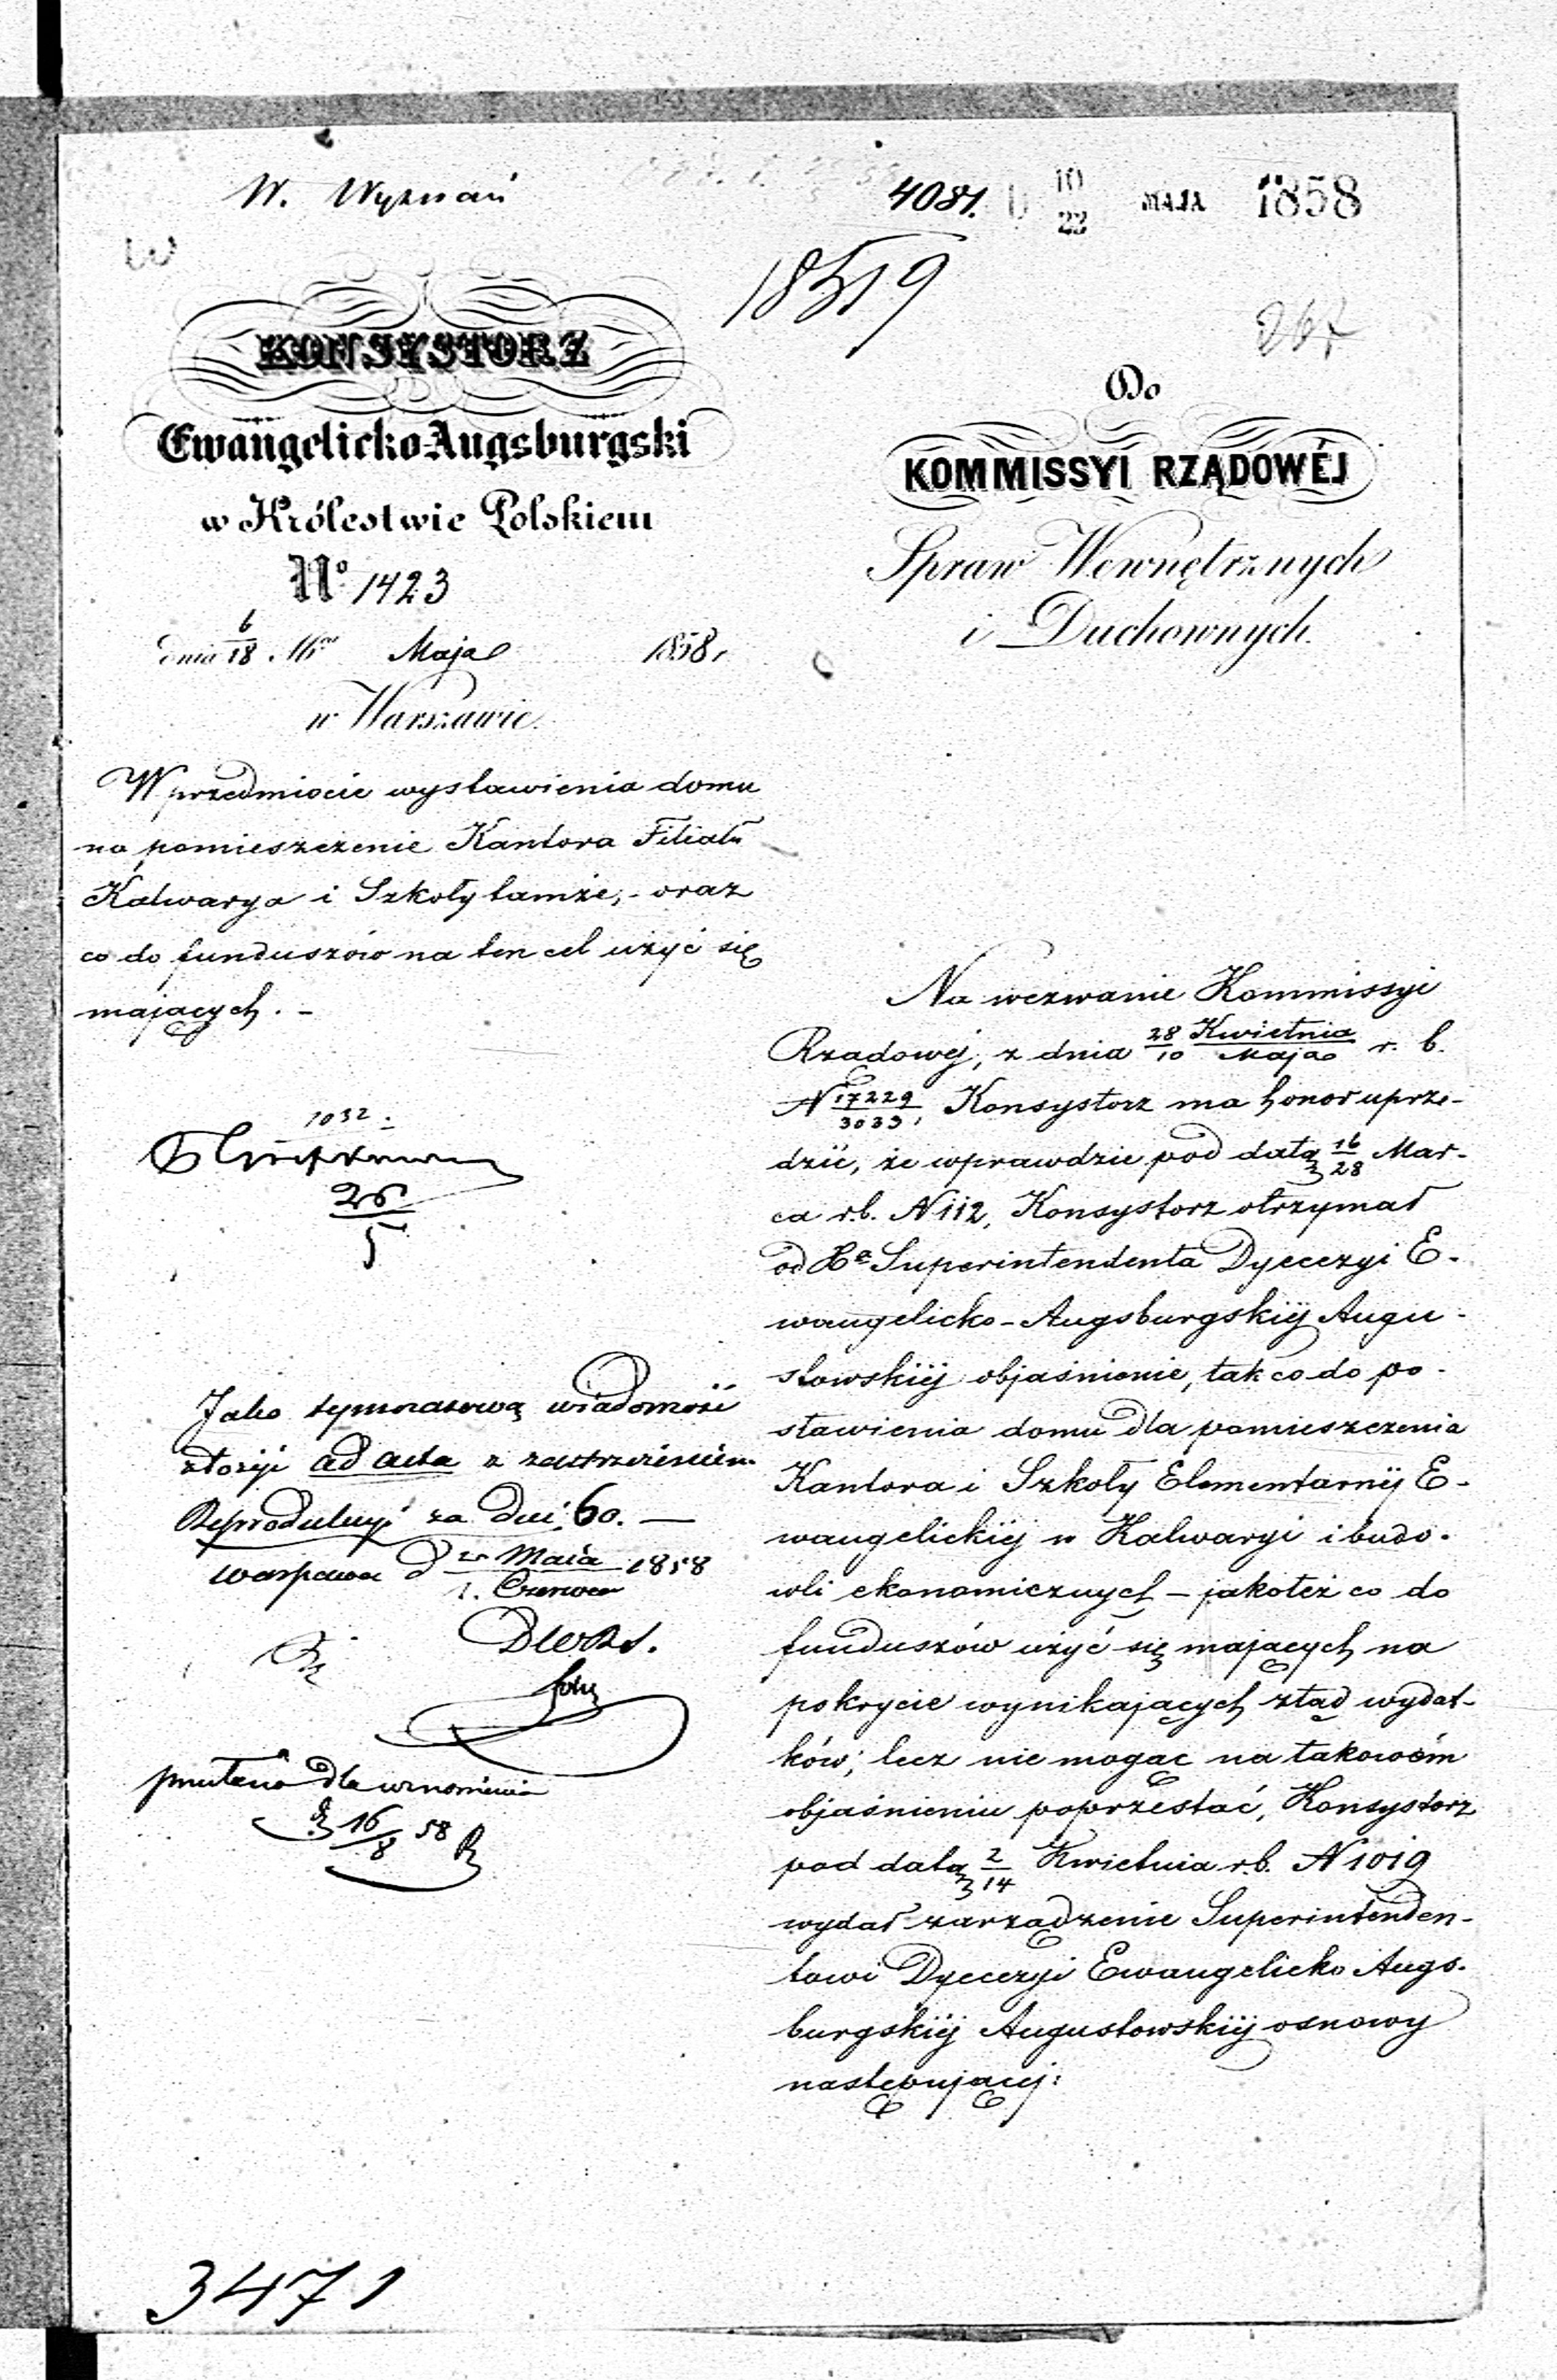 W. Wyznań
4081.
10/22 MAJA 1858
18519
KONSYSTORZ
Ewangelicko-Augsburgski
w Królestwie Polskiem
No 1423
dnia 6/18 Mca Maja 1858.
w Warszawie.
W przedmiocie wystawienia domu
na pomieszczenie Kantora Filiału
Kalwarya i Szkoły tamże, - oraz
co do funduszów na ten cel użyć się
mających. -
1032.
26/5
Jako tymczasową wiadomość
złożyć ad acta z zastrzeżeniem
Reprodukcyi za dni 60. —
Warszawa d Maia / 1. Czerwca 1858
16/8 58
Do
KOMMISSYI RZĄDOWÉJ
Spraw Wewnętrznych
i Duchownych.
Na wezwanie Kommissyi
Rządowej, z dnia 28 Kwietnia / 10 Maja r. b.
N 17229/3033, Konsystorz ma honor uprze-
dzić, że wprawdzie pod datą 16/28 Mar-
ca r.b. N 112, Konsystorz otrzymał
od Xa Superintendenta Dyecezyi E-
wangelicko-Augsburgskiéj Augu-
stowskiéj objaśnienie, tak co do po-
stawienia domu dla pomieszczenia
Kantora i Szkoły Elementarnéj E-
wangelickiéj w Kalwaryi i budo-
wli ekonomicznych – jakoteż co do
funduszów użyć się mających na
pokrycie wynikających ztąd wydat-
ków; lecz nie mogąc na takowém
objaśnieniu poprzestać, Konsystorz
pod datą 2/14 Kwietnia r.b. N 1019
wydał zarządzenie Superintenden-
towi Dyecezyi Ewangelicko Augs-
burgskiéj Augustowskiéj osnowy
następującej:
3471